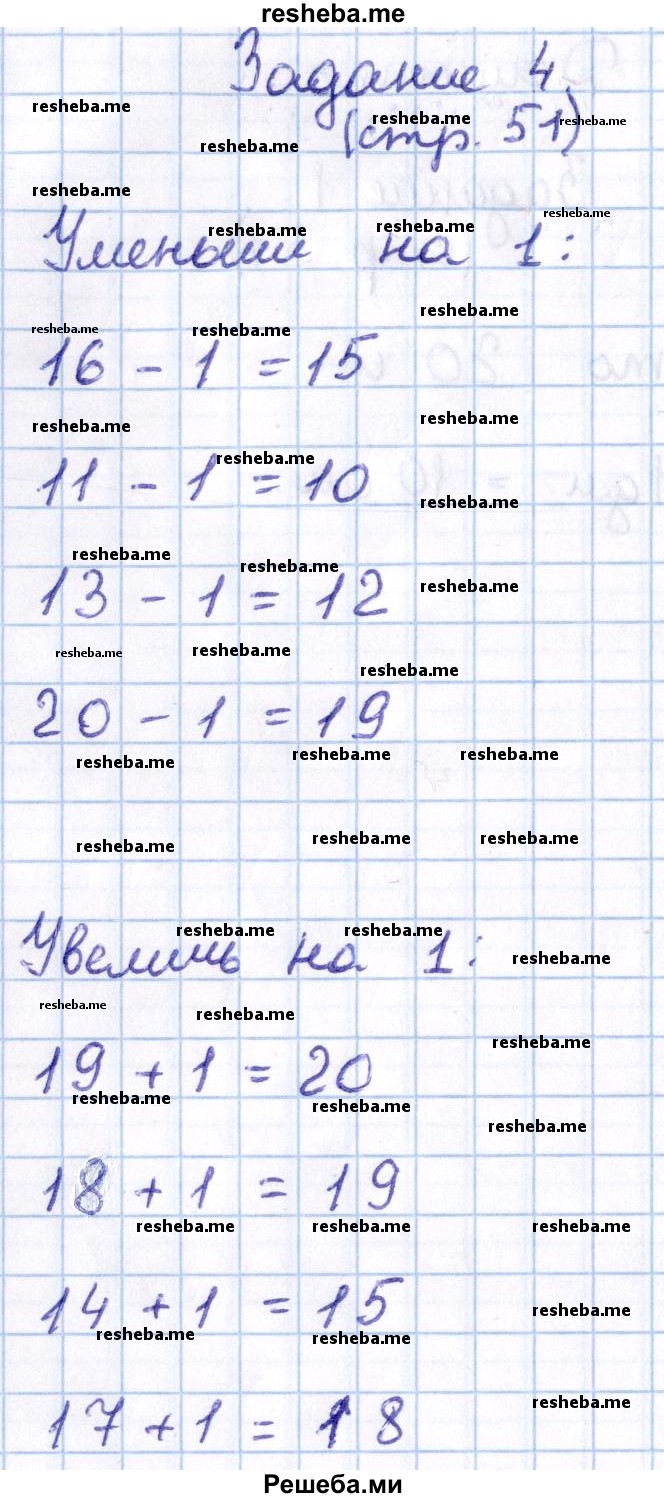 resheba.me
Задание 4
resheba.me resheba.me resheba.me
resheba.me
(стр. 51)
resheba.me
resheba.me resheba.me resheba.me
Уменьши на 1:
resheba.me
resheba.me resheba.me
16 - 1 = 15
resheba.me resheba.me
resheba.me
11 - 1 = 10
resheba.me
resheba.me resheba.me
resheba.me
13 - 1 = 12
resheba.me resheba.me
resheba.me
20 - 1 = 19
resheba.me resheba.me resheba.me
resheba.me resheba.me resheba.me
resheba.me resheba.me
Увеличь на 1:
resheba.me
resheba.me resheba.me
resheba.me
19 + 1 = 20
resheba.me resheba.me
resheba.me
18 + 1 = 19
resheba.me resheba.me resheba.me
14 + 1 = 15
resheba.me
resheba.me resheba.me
resheba.me
17 + 1 = 18
Решеба.ми